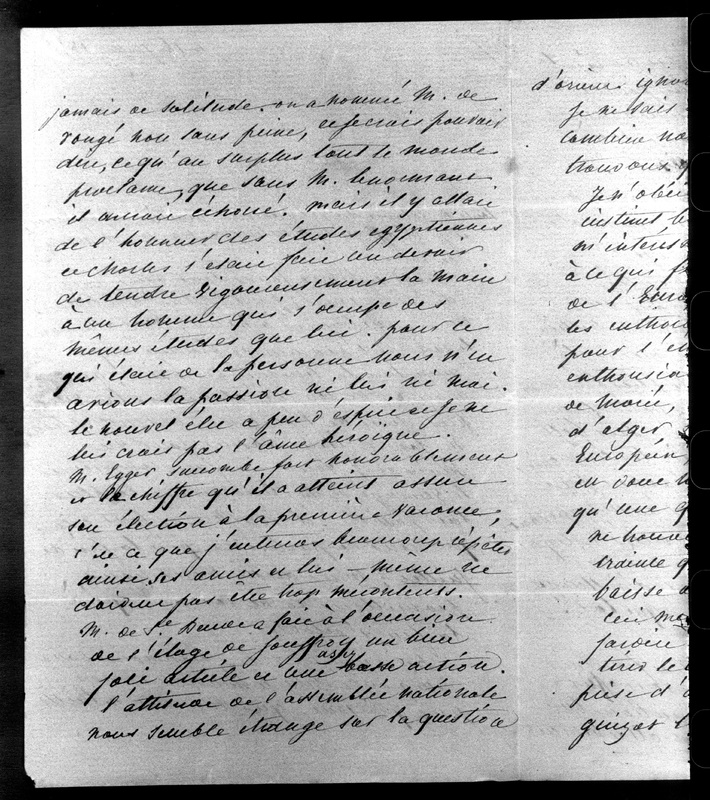 jamais de solitude. on a nommé M. de
rougé non sans peine, et je crois pouvoir
dire, ce qu'au surplus tout le monde
proclame, que sans M. lenormant
il aurait échoué. mais il y allait
de l'honneur des études egyptiennes
et Charles s'était fait un devoir
de tendre vigoureusement la main
à un homme qui s'occupe des
mêmes études que lui. pour ce
qui était de la personne nous n'en
avions la passion ni lui ni moi.
le nouvel élu a peu d'esprit et je ne
lui crois pas l'âme héroïque.
M. Egger succombe fort honorablement
et le chiffre qu'il a atteint assure
son élection à la première vacance,
c'est ce que j'entends beaucoup répéter
ainsi ses amis et lui-même ne
doivent pas être trop mécontents.
M. de Ste Beuve a fait à l'occasion
de l'éloge de Jouffroy un bien
joli article et une assez basse action.
l'attitude de l'assemblée nationale
nous semble étrange sur la question
d'orient
je ne sais
combien
Je n'
instinct
m'intéress
à ce qui
de l'Euro
les enthou
pour l'
enthousia
de Maroc,
d'alger
Européen
en
qu'une
ne trouve
crainte
baisse
ceci
jardin
prise d'
guizot